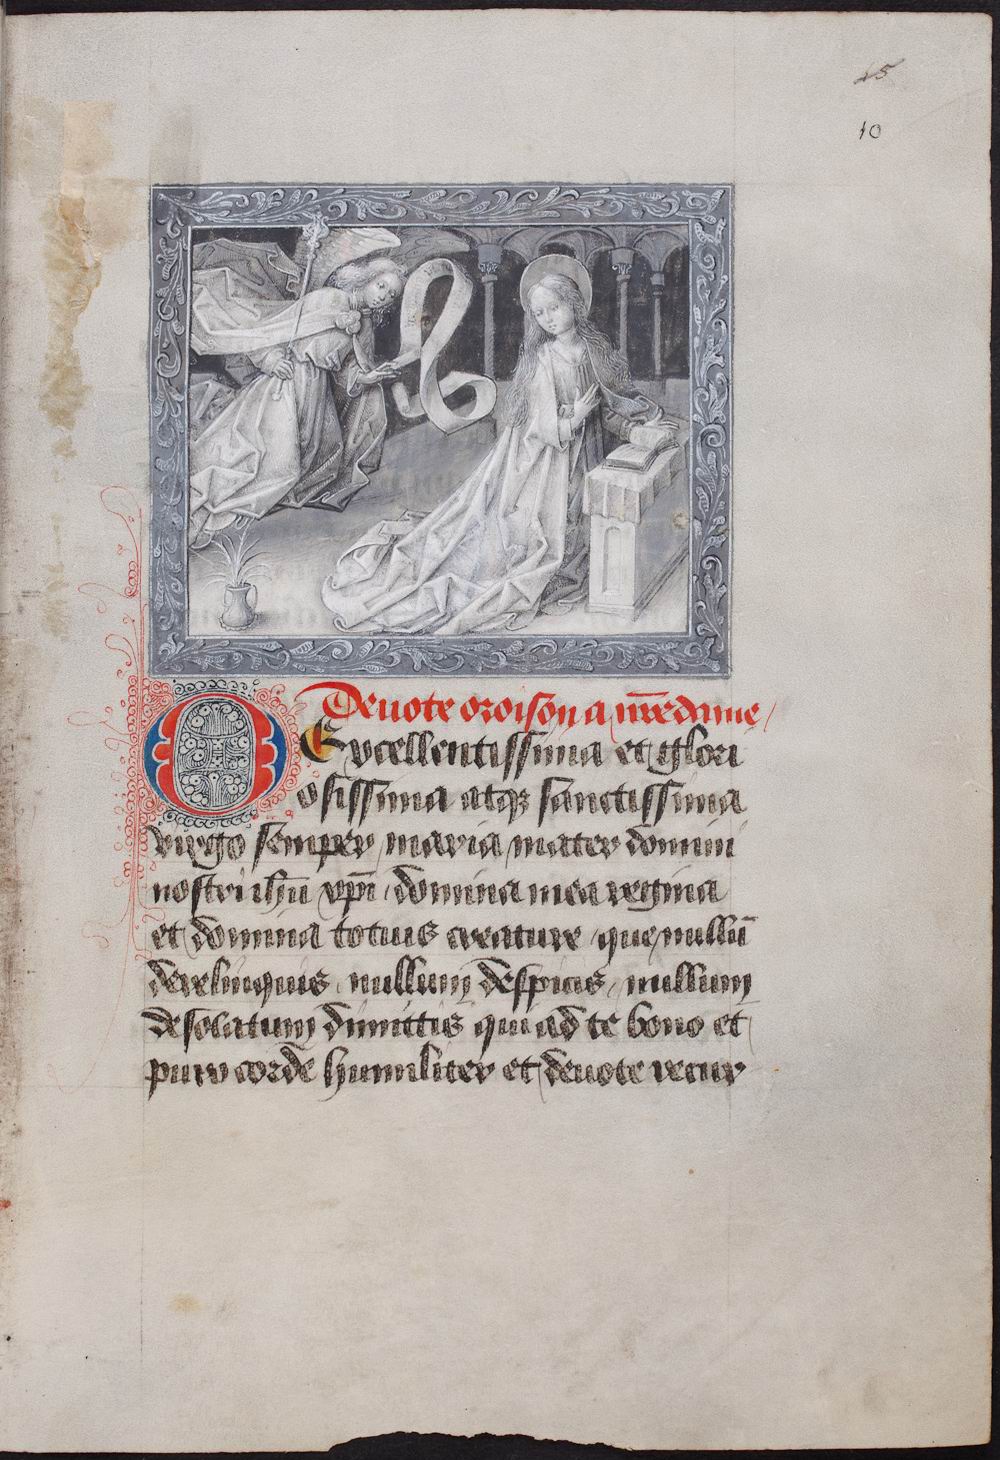 25
10
Deuote oroison a nr̄e dame
O Excellentissima et glori
osissima atqꝫ sanctissima
virgo semper maria mater domini
nostri ihū xp̄i / domina mea regina
et domina totius creature / que nullū
derelinquis / nullum despicis / nullum
desolatum dimittis qui ad te bono et
puro corde humiliter et deuote recur